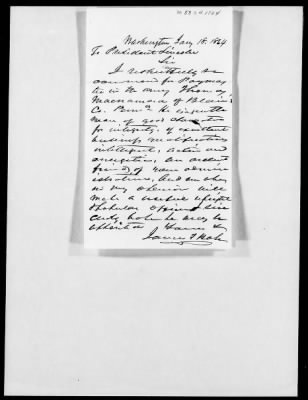 Washington Jany 18. 1864
To President Lincoln
Sir
I respectfully re
commend for Paymas
ter in the Army Thomas
of Blair
Co. Penna. He is a gentle
man of good character
for integrity, of excellent
business qualifications
intelligent, active and
energetic, an ardent
friend of your admin
istration, and one who
in my opinion will
make a useful
officer
duty, where he may be
Yours &c
James T Hale